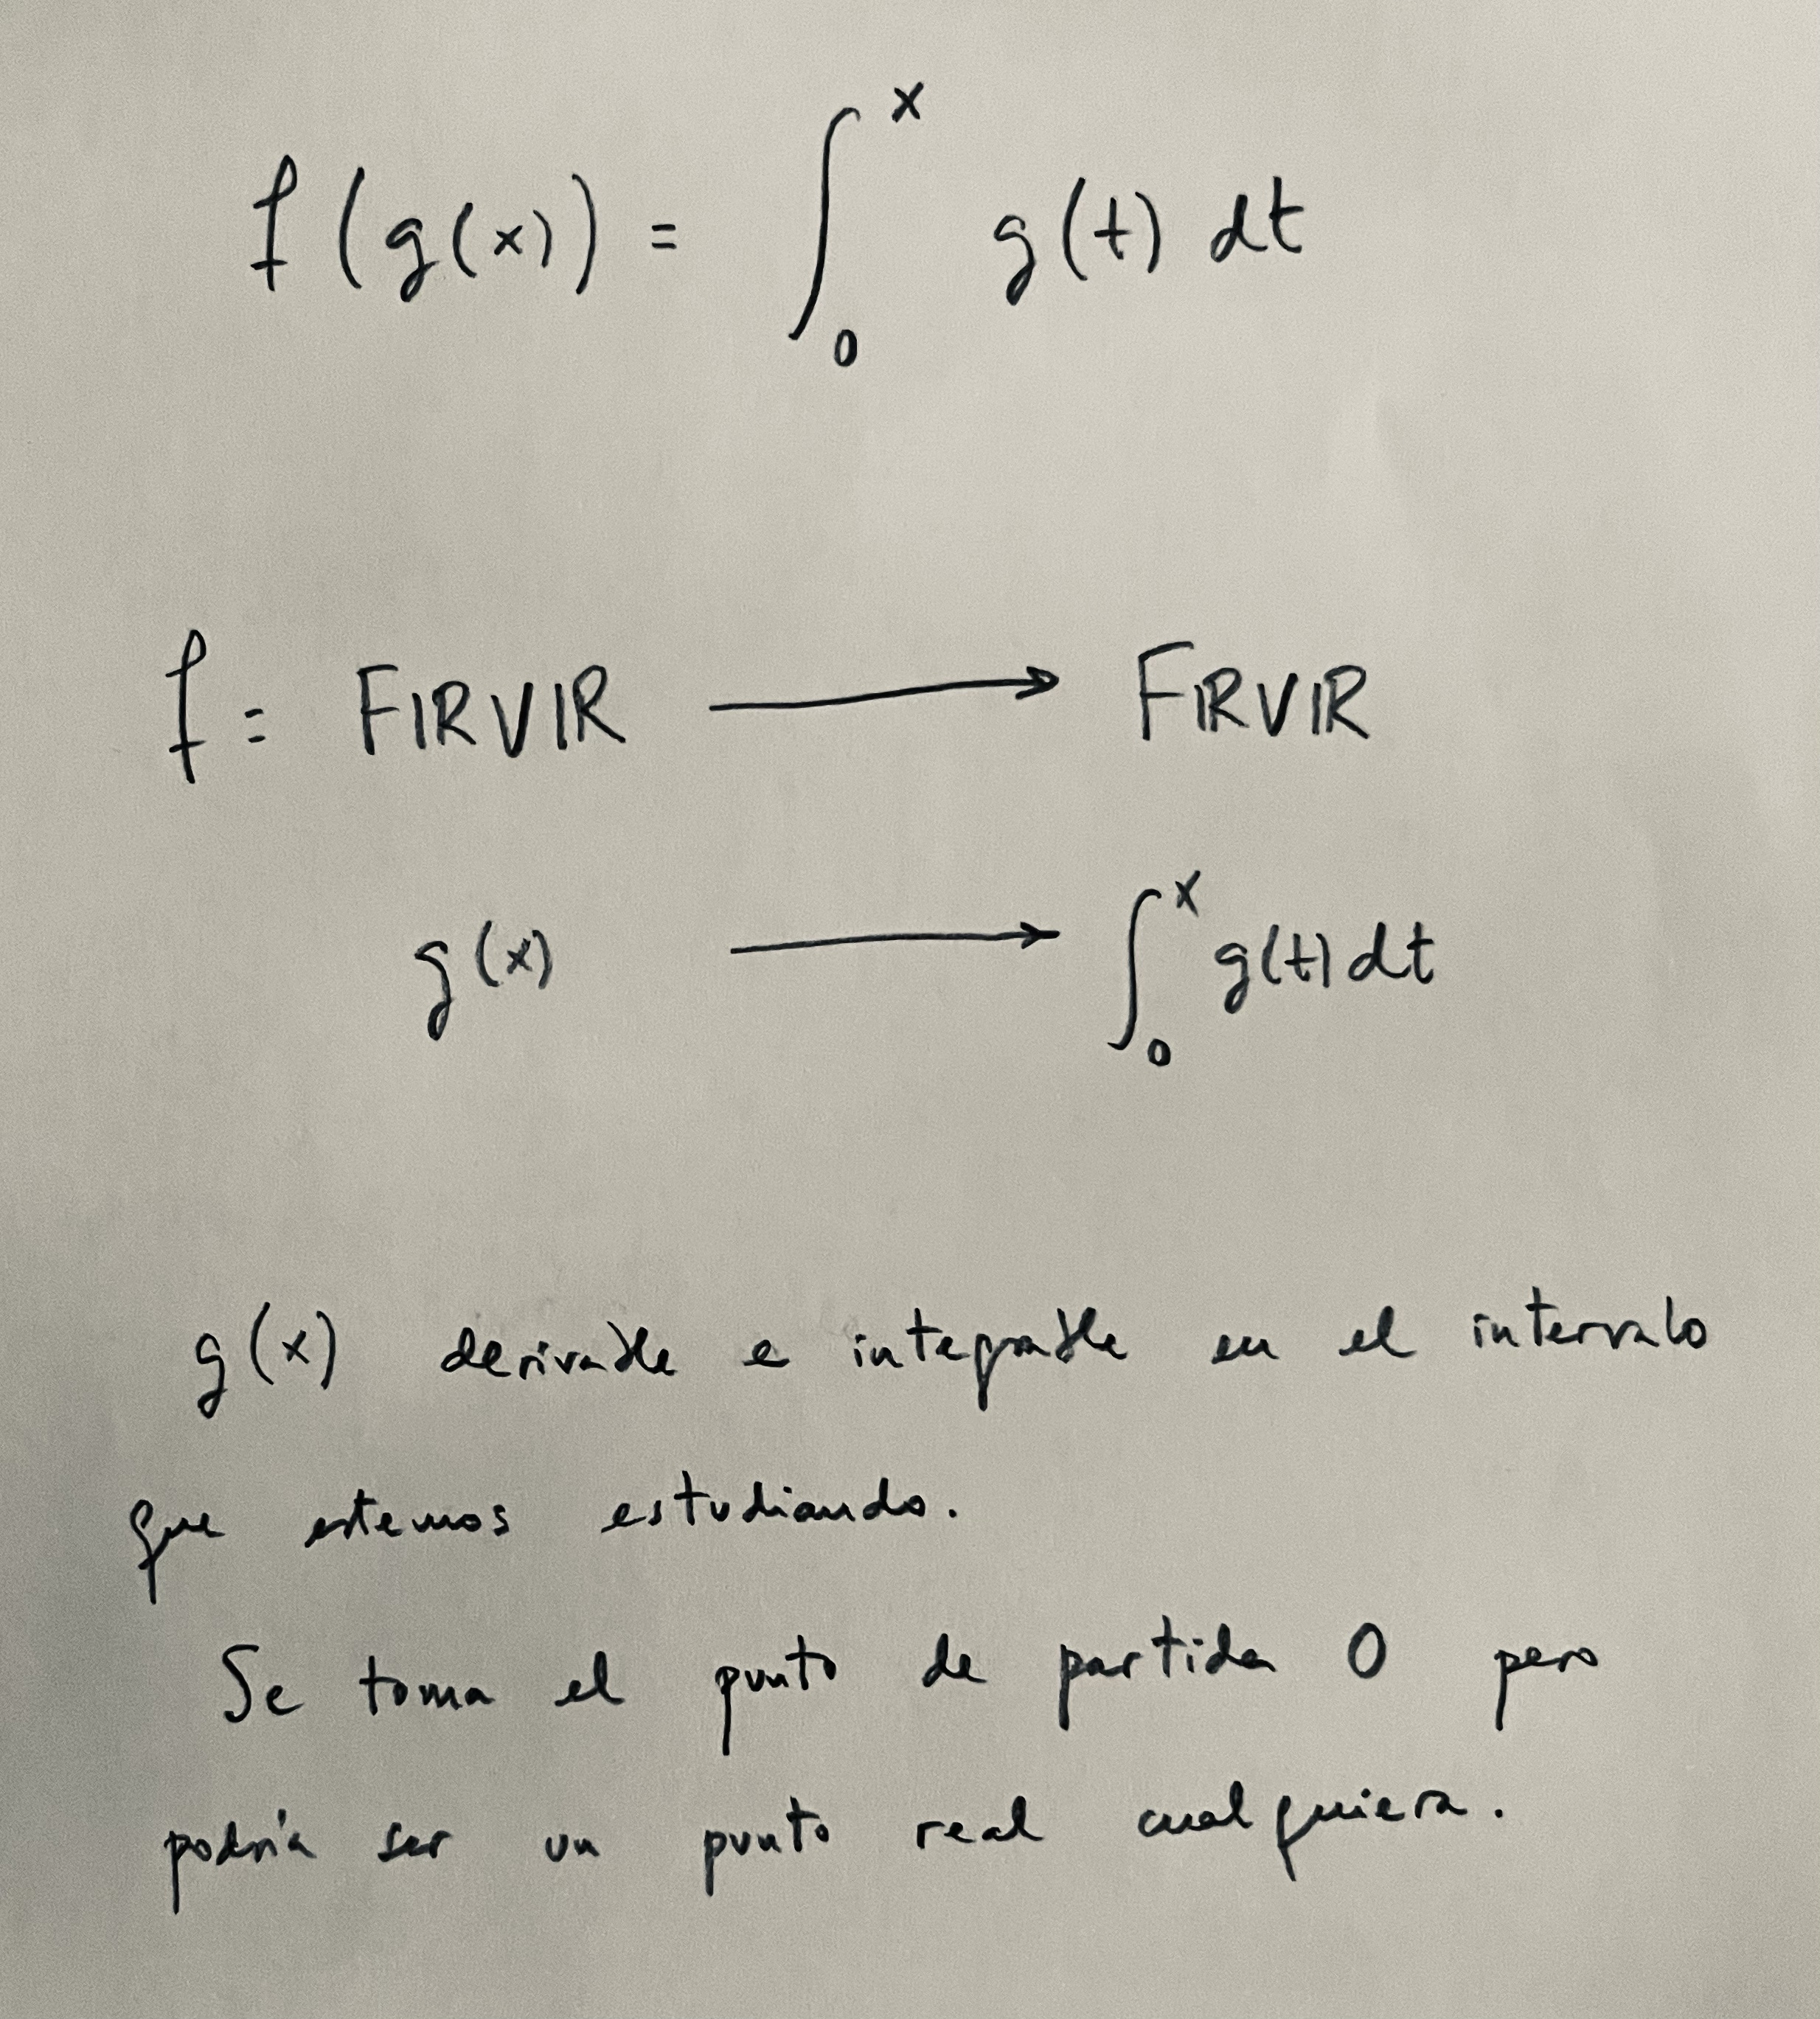 f(g(x)) = ∫₀ˣ g(t) dt
f = FIRVIR ⟶ FIRVIR
g(x) ⟶ ∫₀ˣ g(t) dt
g(x) derivable e integrable en el intervalo
que estemos estudiando.
Se toma el punto de partida 0 pero
podría ser un punto real cualquiera.